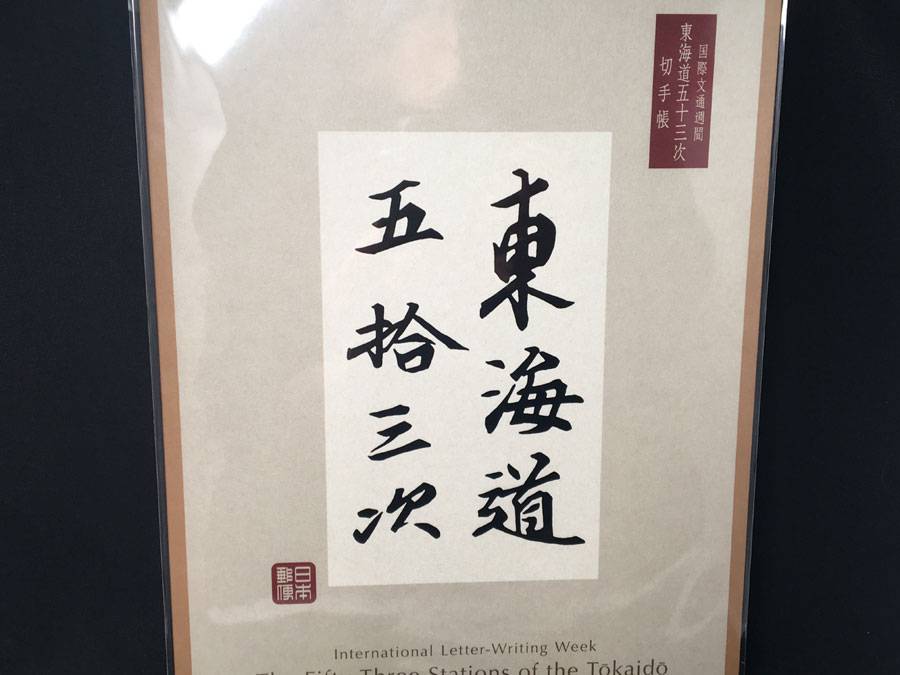 国際文通週間
東海道五十三次
切手帳
東海道
五拾三次
日本
郵便
International Letter-Writing Week
The Fifty-Three Stations of the Tōkaidō